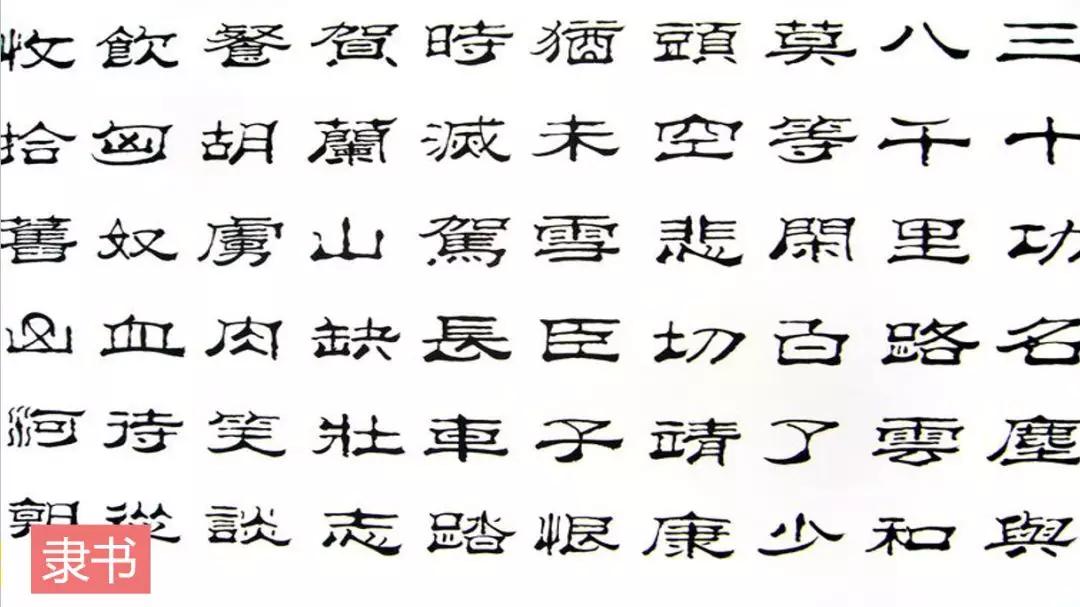 三十功名塵與
八千里路雲和
莫等閑白了少
頭空悲切靖康
猶未雪臣子恨
時滅駕長車踏
賀蘭山缺壯志
餐胡虜肉笑談
飲匈奴血待從
收拾舊山河朝
隶书